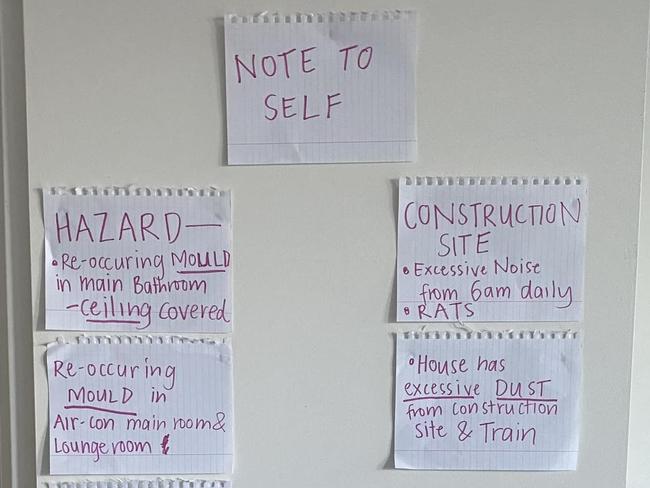 NOTE TO
SELF
HAZARD—
• Re-occuring MOULD
in main Bathroom
- ceiling covered
Re-occuring
MOULD in
Air-con main room &
Lounge room
CONSTRUCTION
SITE
• Excessive Noise
from 6am daily
• RATS
• House has
excessive DUST
from construction
site & Train